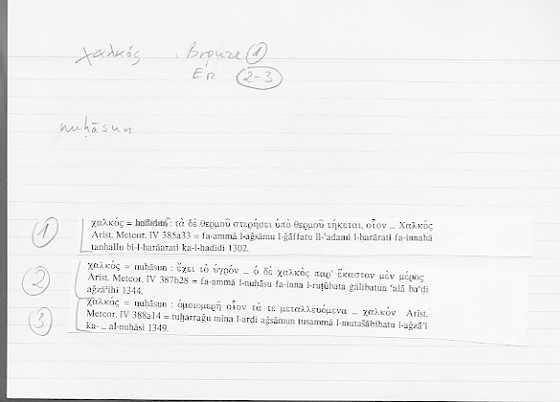 χαλκός Bronze ①
Erz ②-3
nuḥāsun
① χαλκός = ḥadīdun : τὰ δὲ θερμοῦ στερήσει ὑπὸ θερμοῦ τήκεται, οἷον ... Χαλκός
Arist. Meteor. IV 385a33 = fa-ammā l-aǧsāmu l-ǧāffatu li-'adami l-ḥarārati fa-innahā
tanḥallu bi-l-ḥarārati ka-l-ḥadīdi 1302.
② χαλκός = nuḥāsun : ἔχει τὸ ὑγρόν – ὁ δὲ χαλκὸς παρ' ἕκαστον μὲν μέρος
Arist. Meteor. IV 387b28 = fa-ammā l-nuḥāsu fa-inna l-ruṭūbata ġālibatun 'alā ba'ḍi
aǧzā'ihī 1344.
③ χαλκός = nuḥāsun : ὁμοιομερῆ οἷον τά τε μεταλλευόμενα ... χαλκόν Arist.
Meteor. IV 388a14 = tuḫarraǧu mina l-arḍi aǧsāmun tusammā l-mutašābihatu l-aǧzā'i
ka- ... al-nuḥāsi 1349.